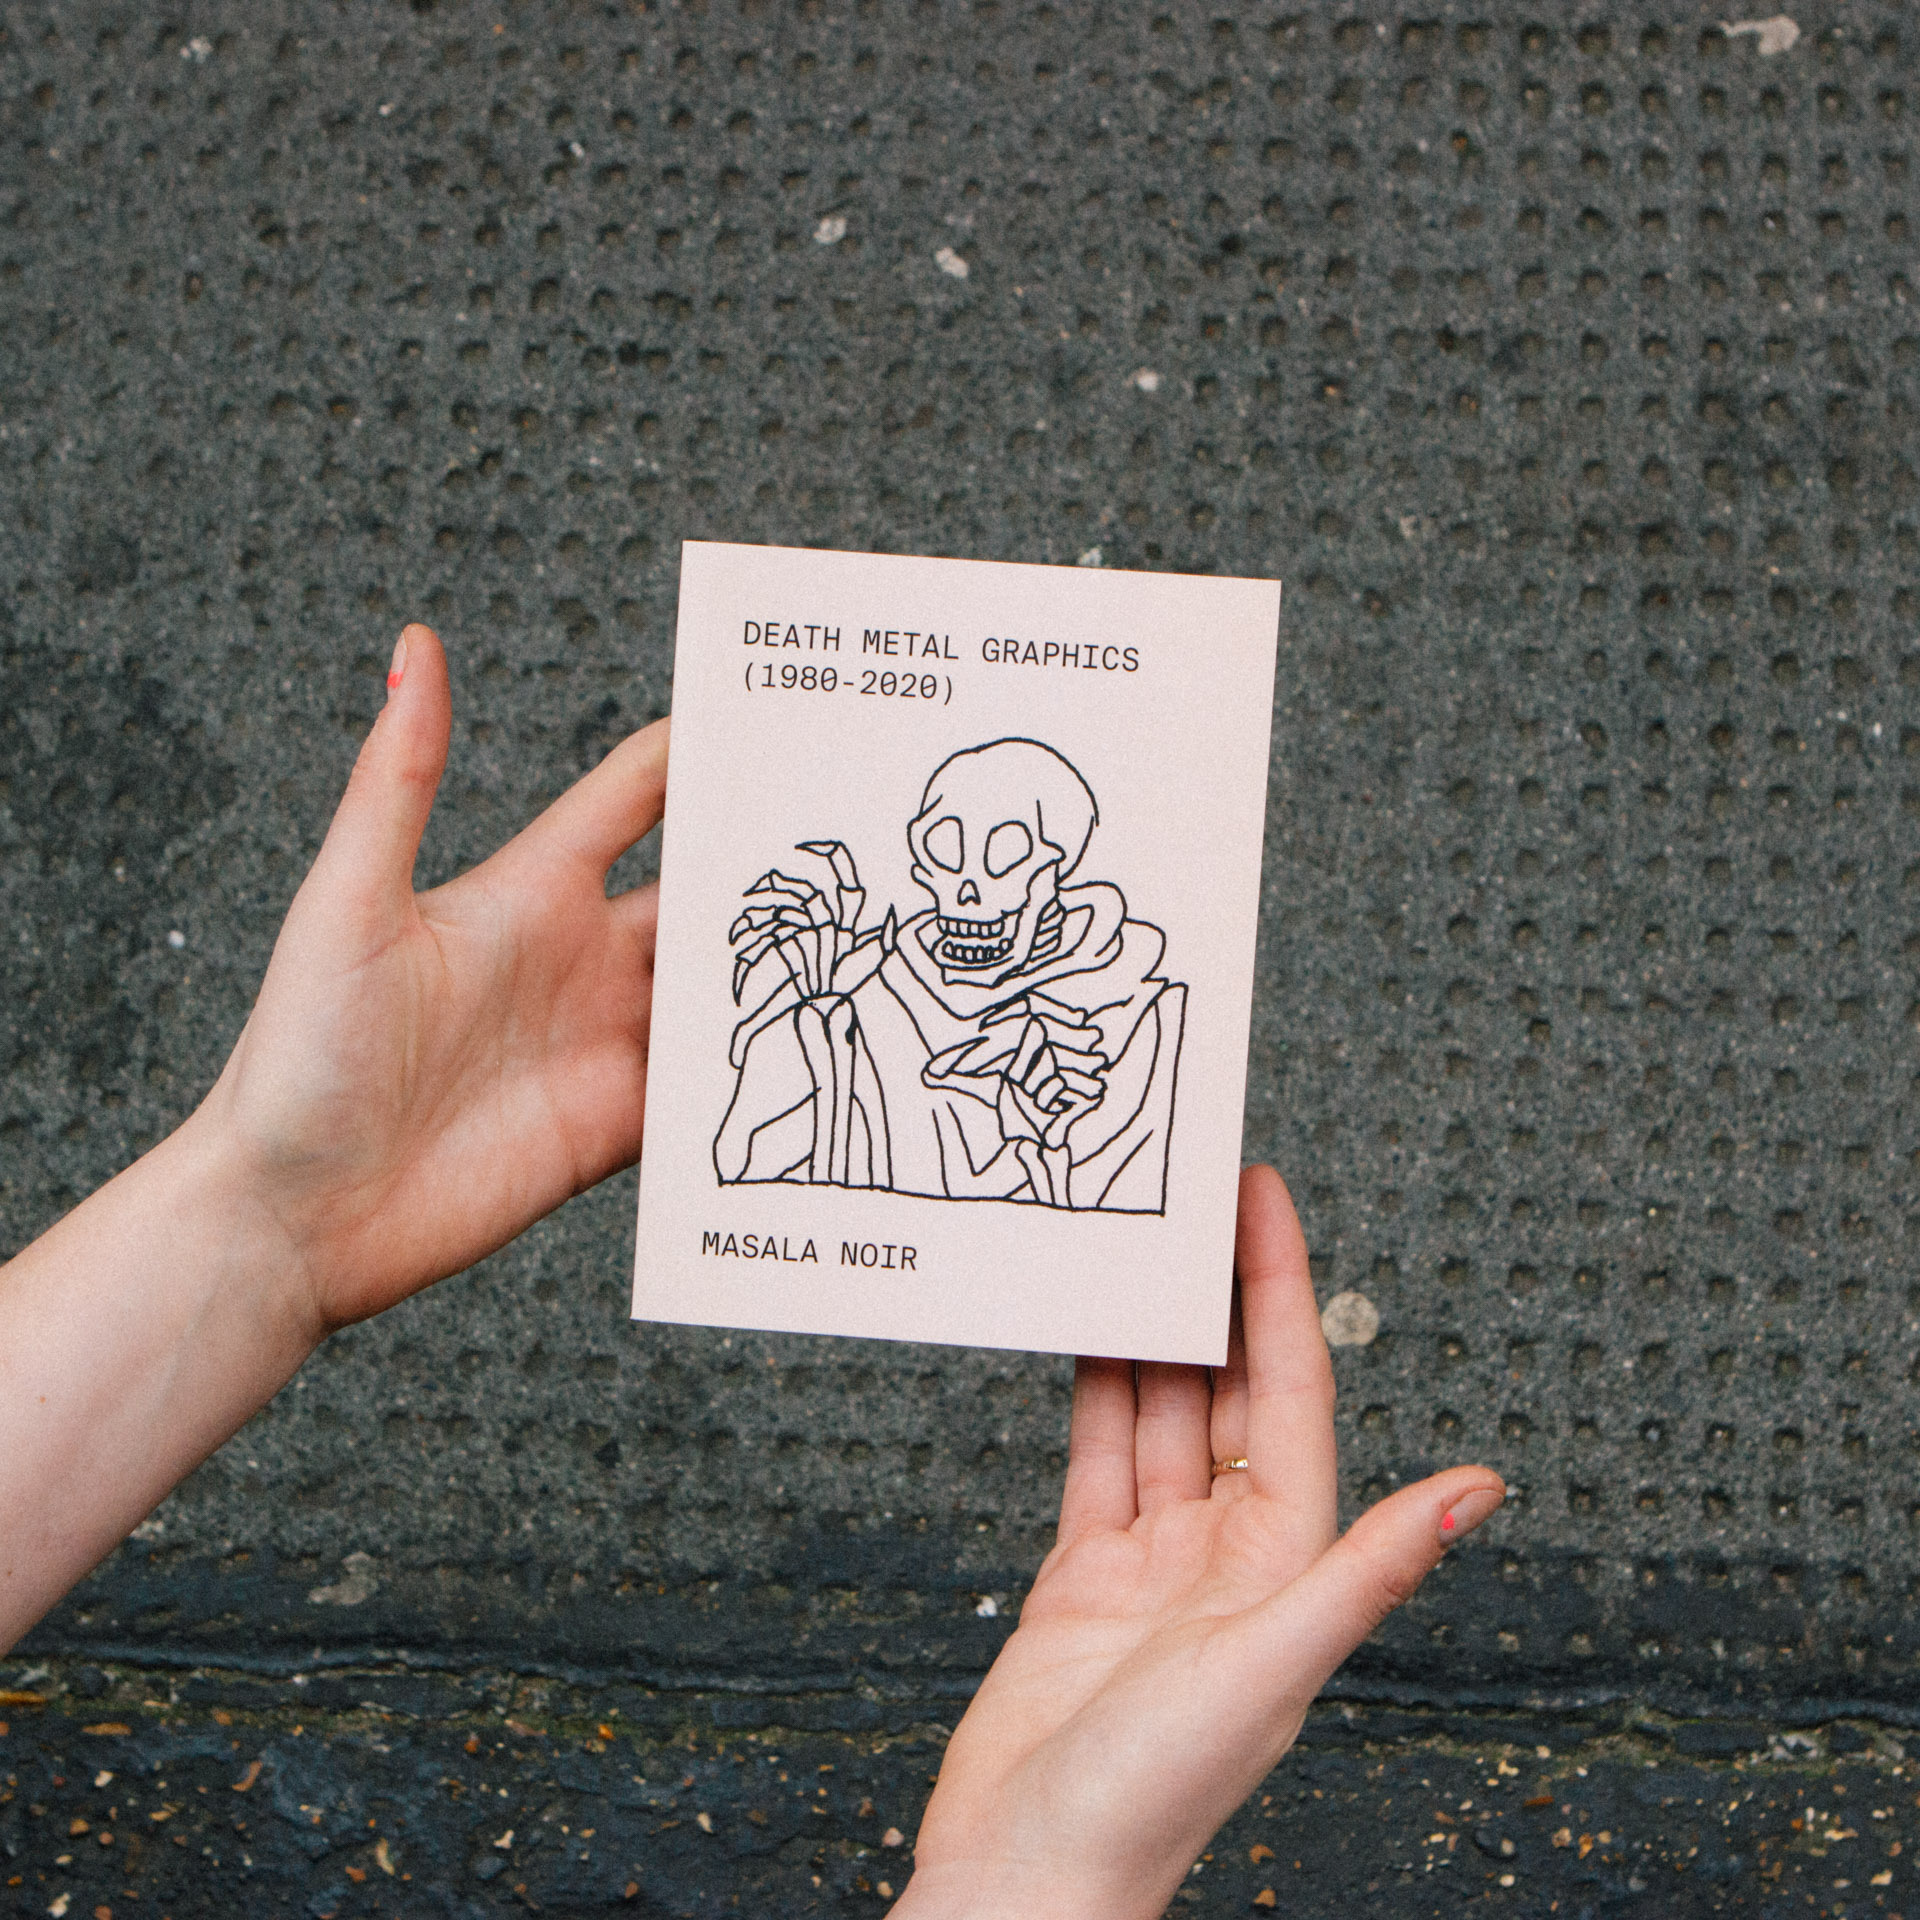 DEATH METAL GRAPHICS
(1980-2020)
MASALA NOIR